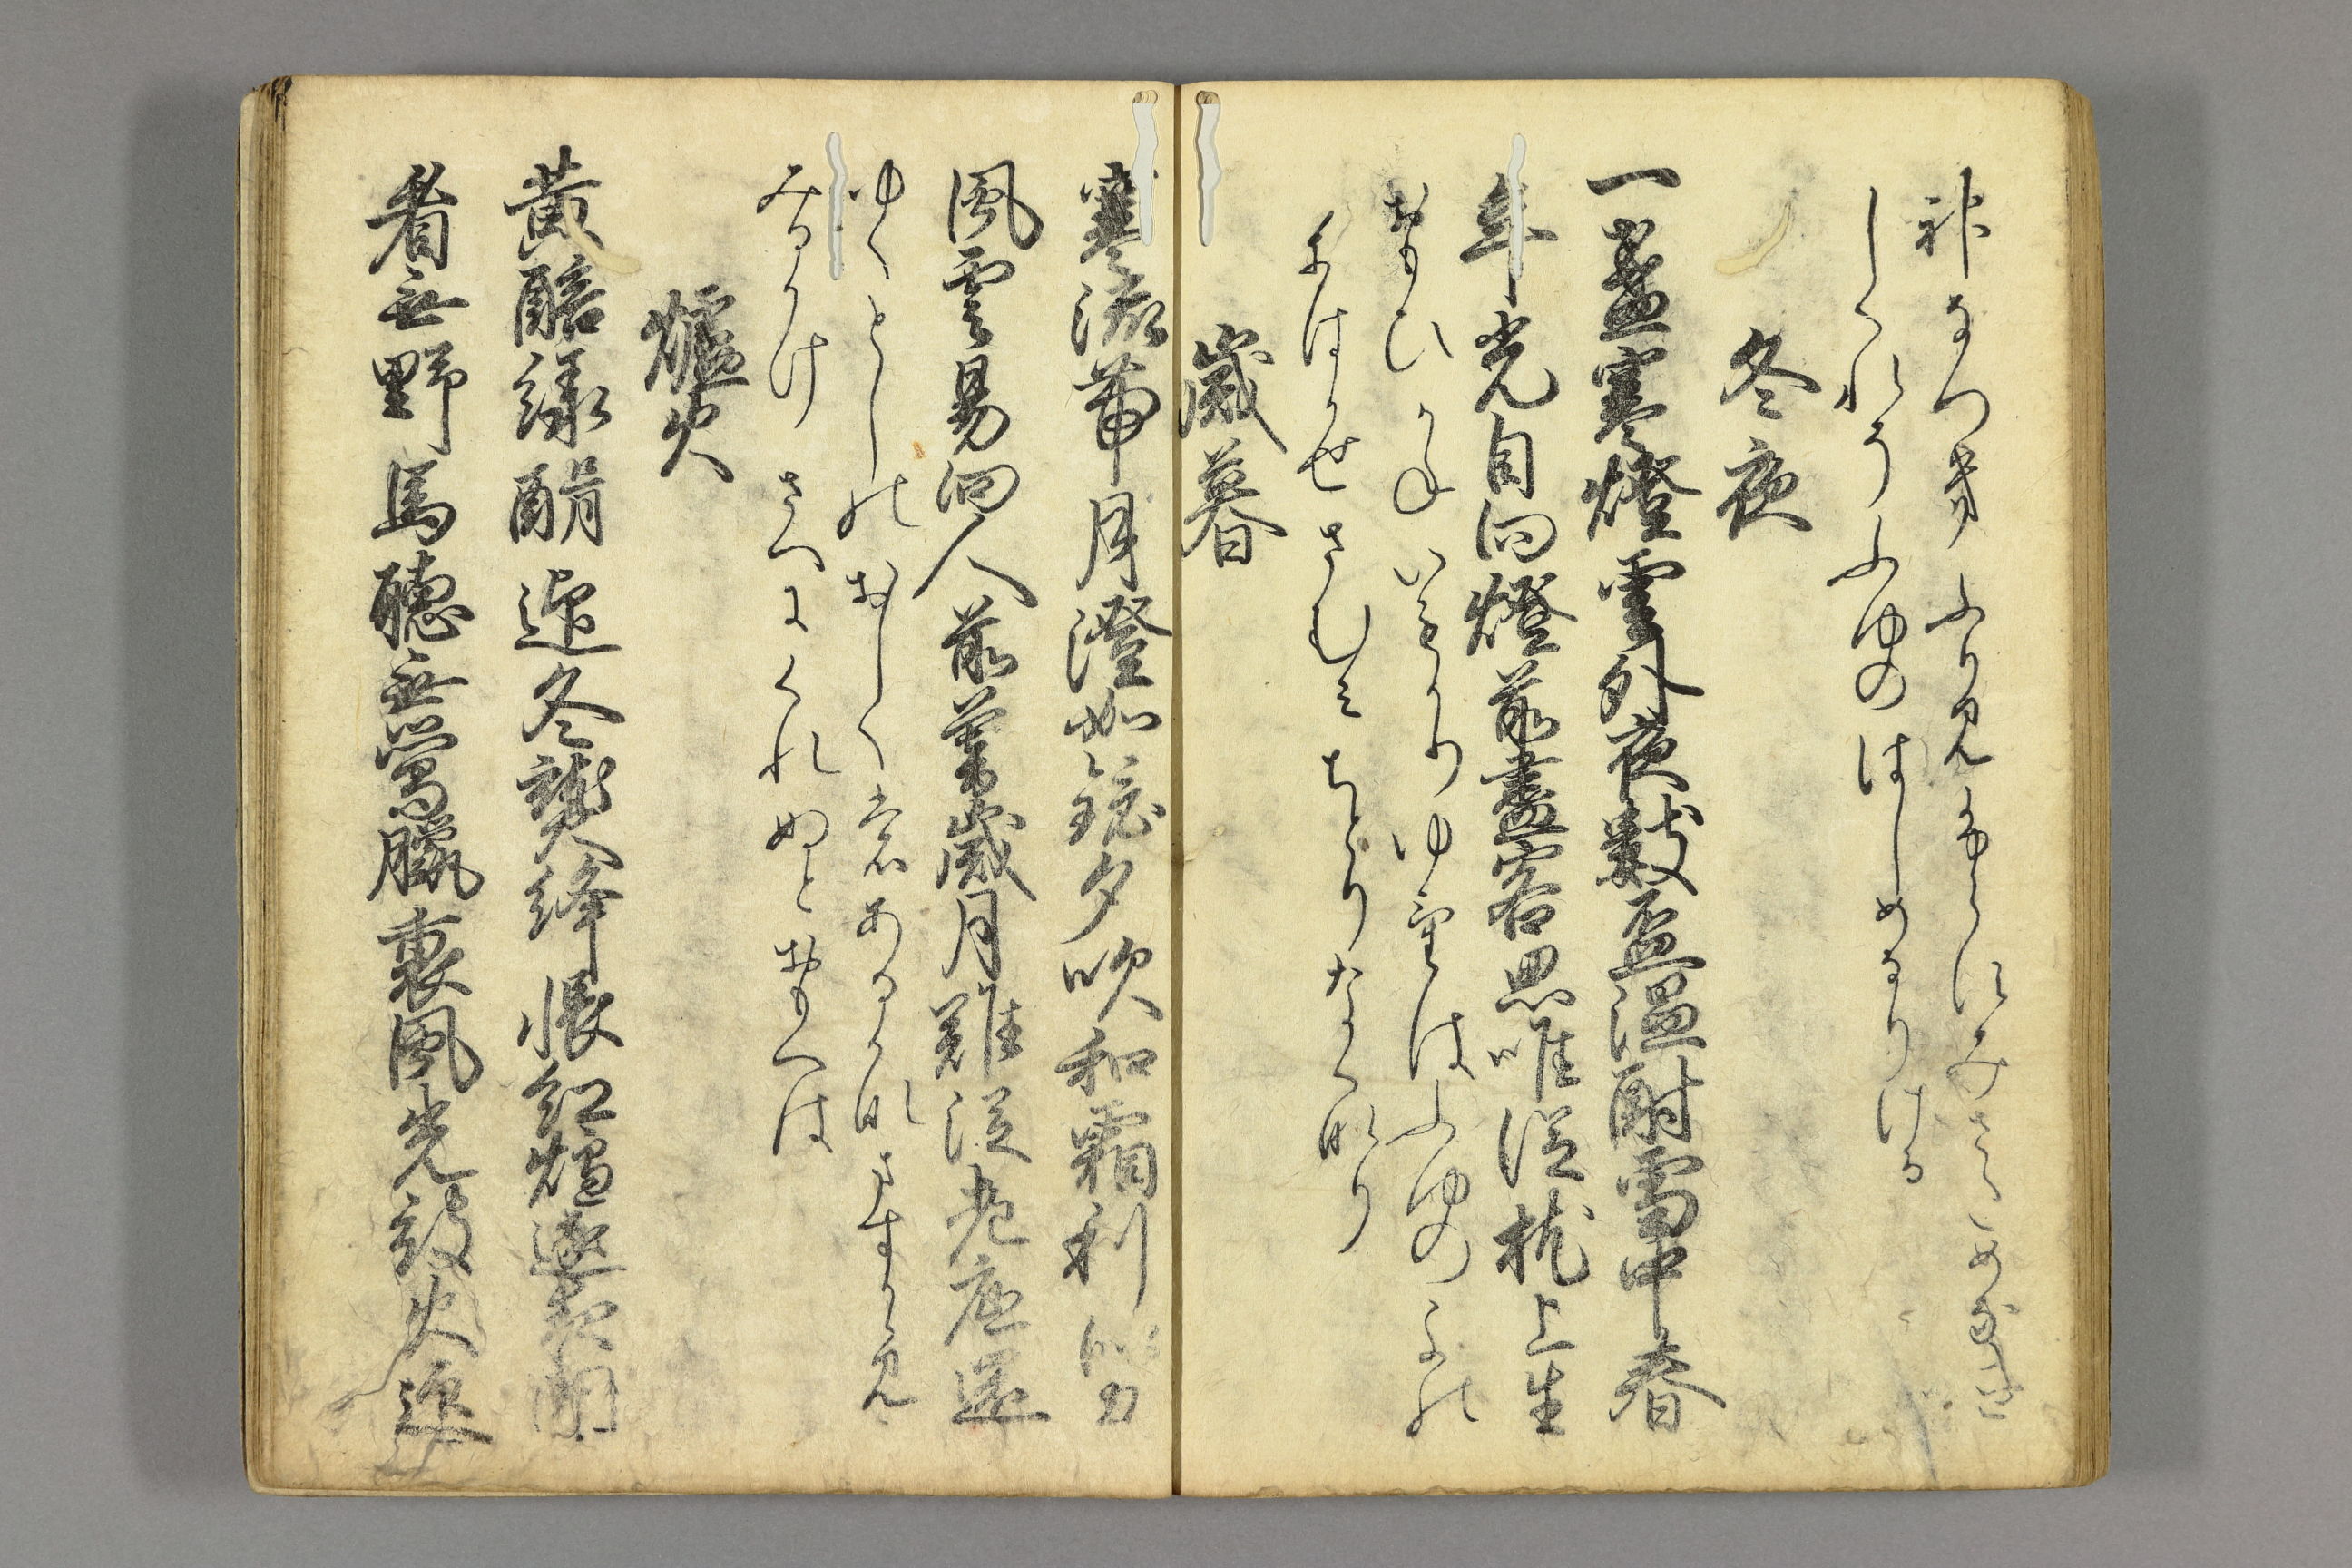 神なつきふりみふらすみさためなき
しくれそふゆのはしめなりける
冬夜
一盞寒燈雲外夜數盃温酎雪中春
年光自向燈前盡客思唯從枕上生
おもひかねいもかりゆけはふゆのよの
かはかせさむみちとりなくなり
歳暮
寒流帯月澄如鏡夕吹和霜利似刀
風雲易向人前暮歳月難從老底還
ゆくとしのおしくもあるかなますかゝみ
みるかけさへにくれぬとおもへは
爐火
黄醅緑醑迎冬熟絳帳紅爐逐夜開
看無野馬聽無鶯臘裏風光被火迎